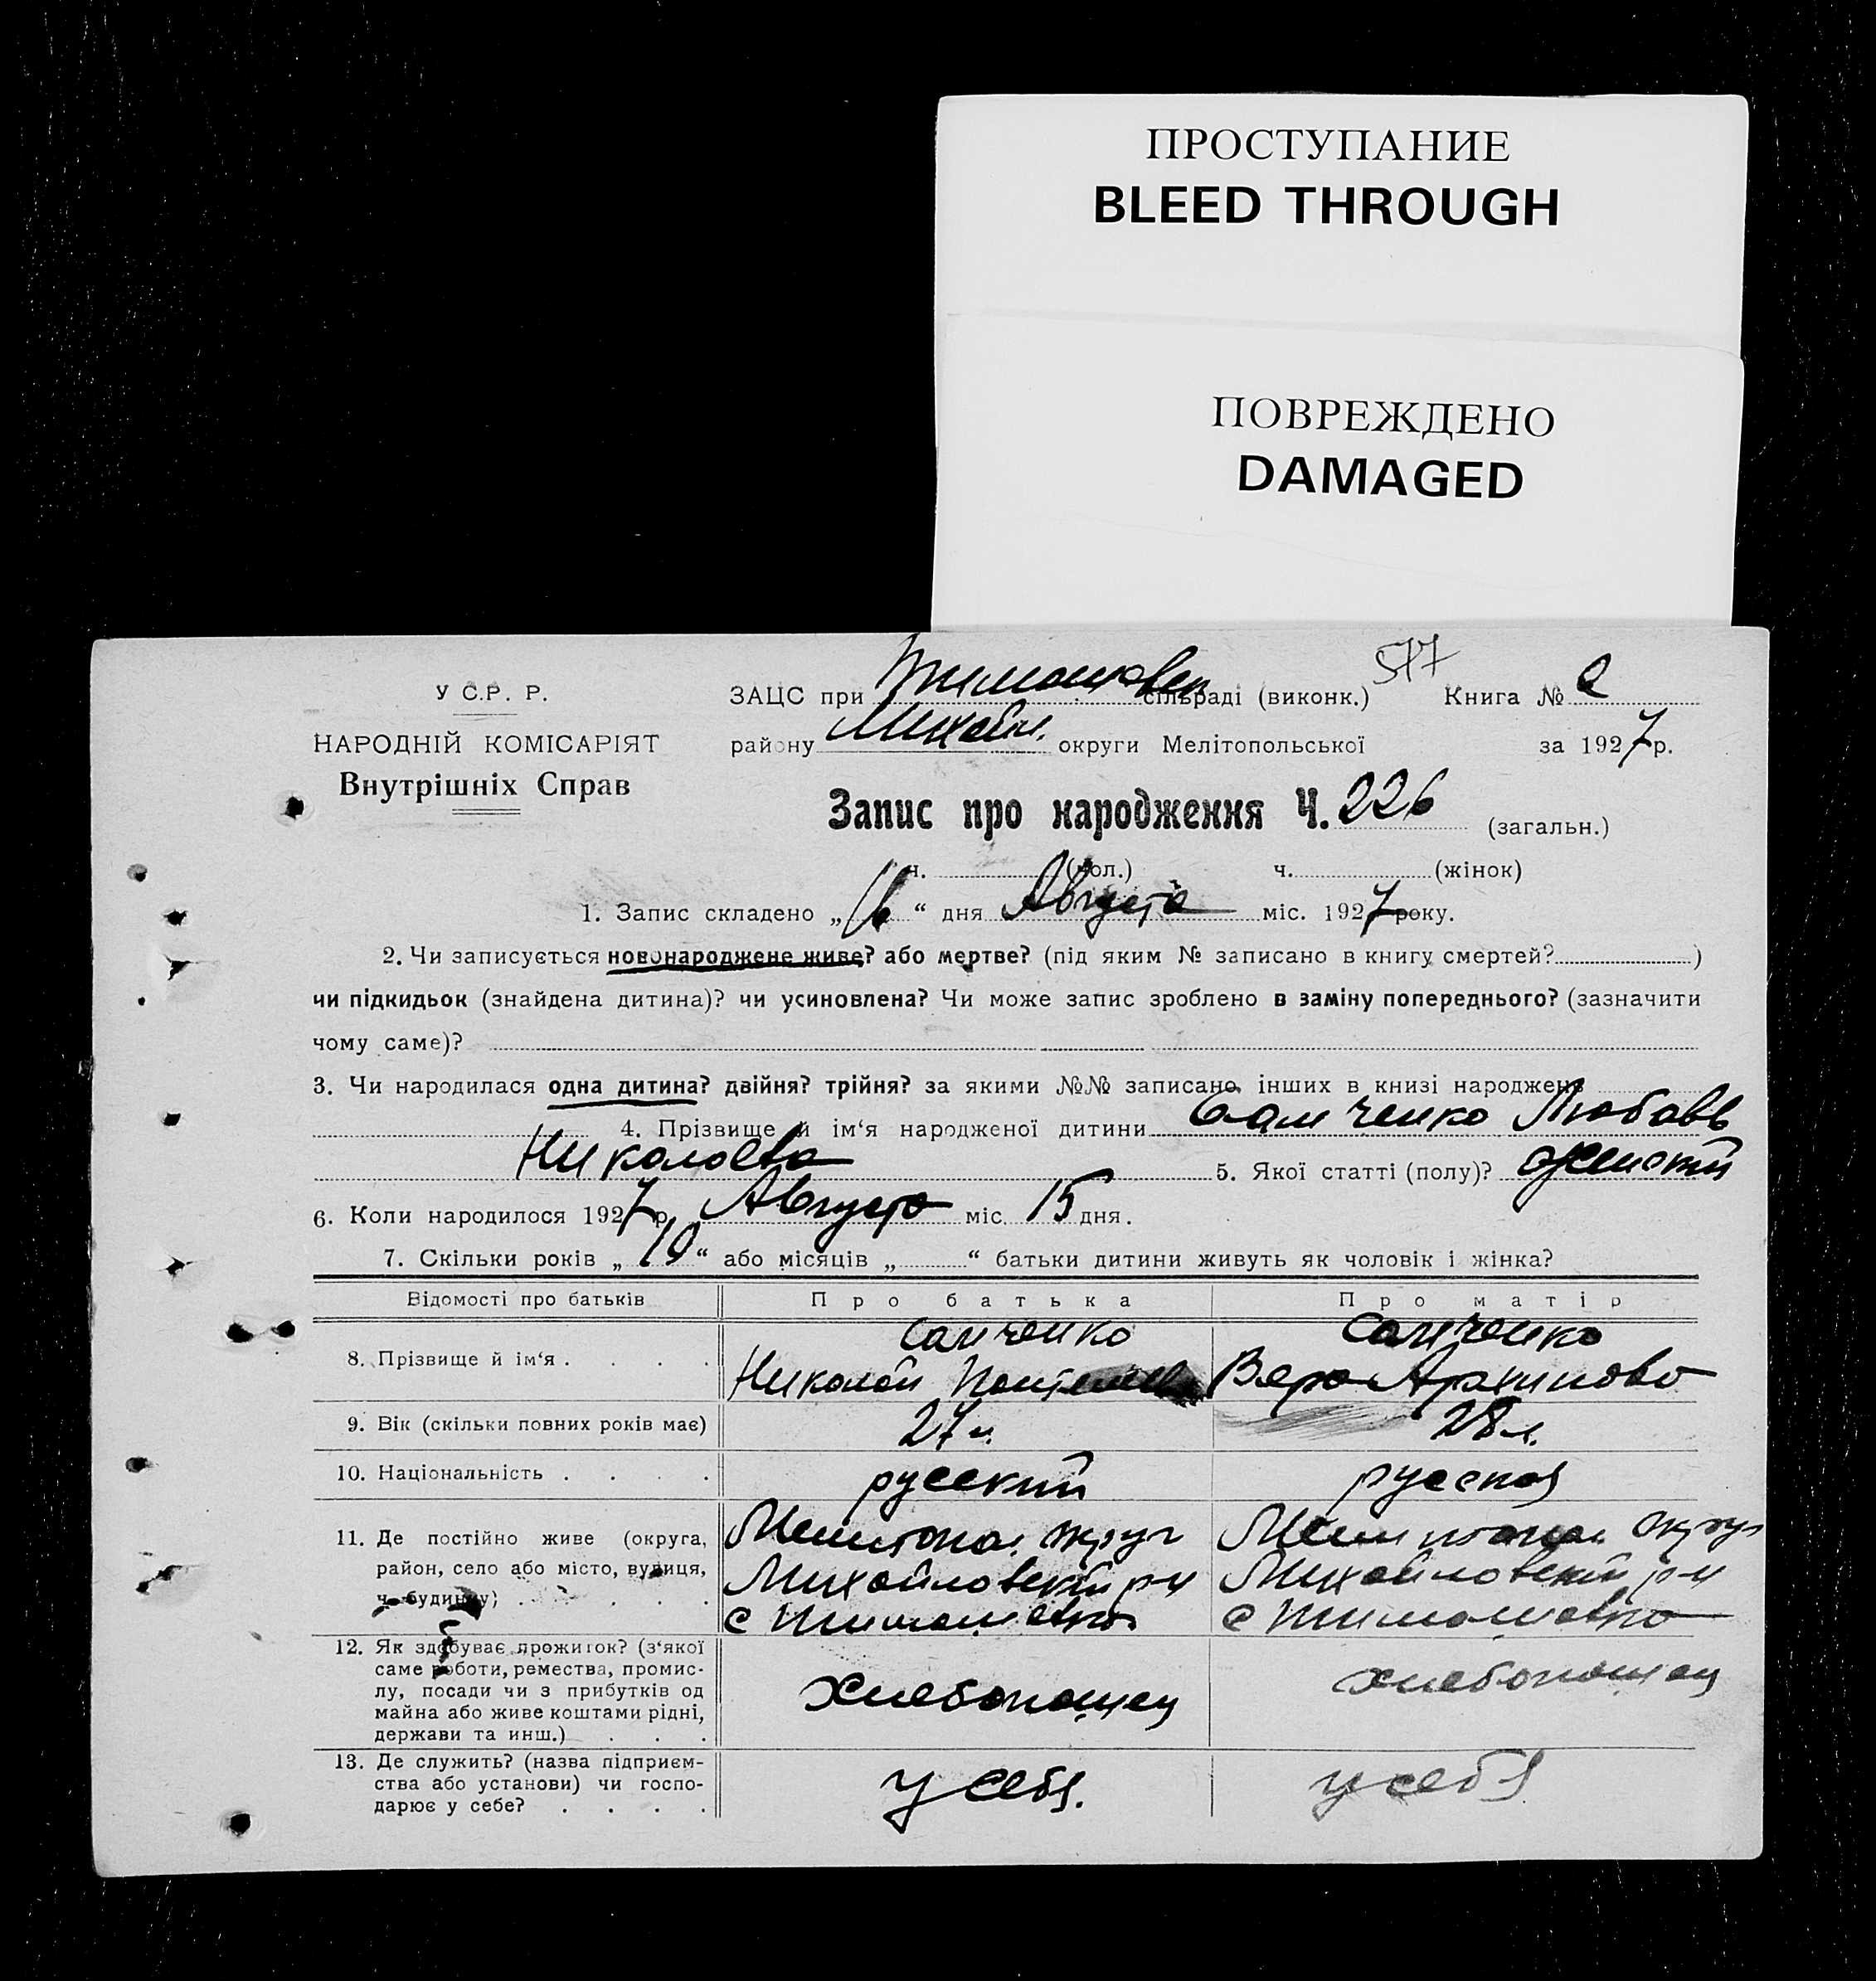 ПРОСТУПАНИЕ
BLEED THROUGH
ПОВРЕЖДЕНО
DAMAGED
577
У С.Р. Р.
НАРОДНІЙ КОМІСАРІЯТ
Внутрішніх Справ
ЗАЦС при Тимошовск сільраді (виконк.) Книга №
району Михайл. округи Мелітопольської за 1927 р.
Запис про народження Ч. 226 (загальн.)
ч. (чол.) ч. (жінок)
1. Запис складено „16“ дня Августа міс. 1927 року.
2. Чи записується новонароджене живе? або мертве? (під яким № записано в книгу смертей? )
чи підкидьок (знайдена дитина)? чи усиновлена? Чи може запис зроблено в заміну попереднього? (зазначити
чому саме)?
3. Чи народилася одна дитина? двійня? трійня? за якими №№ записано інших в книзі народжень
4. Прізвище й ім‘я народженої дитини Самченко Любовь
Николаевна 5. Якої статті (полу)? женский
6. Коли народилося 1927 р. Августа міс. 15 дня.
7. Скільки років „10“ або місяців „ “ батьки дитини живуть як чоловік і жінка?
Відомості про батьків Про батька Про матір
8. Прізвище й ім‘я . . . . Самченко Самченко
Николай Вера Архиповна
9. Вік (скільки повних років має) 27 л. 28 л.
10. Національність . . . . русский русская
11. Де постійно живе (округа, район, село або місто, вулиця, ч. будинку) . . . . .
Мелитопол. округ Мелитопол. округ
Михайловский р-н Михайловский р-н
с Тимошовка с Тимошовка
12. Як здобуває прожиток? (з‘якої
саме роботи, ремества, промис-
лу, посади чи з прибутків од
майна або живе коштами рідні,
держави та инш.) . . .
хлебопашец хлебопашец
13. Де служить? (назва підприєм-
ства або установи) чи госпо-
дарює у себе? . . . .
у себя. у себя.